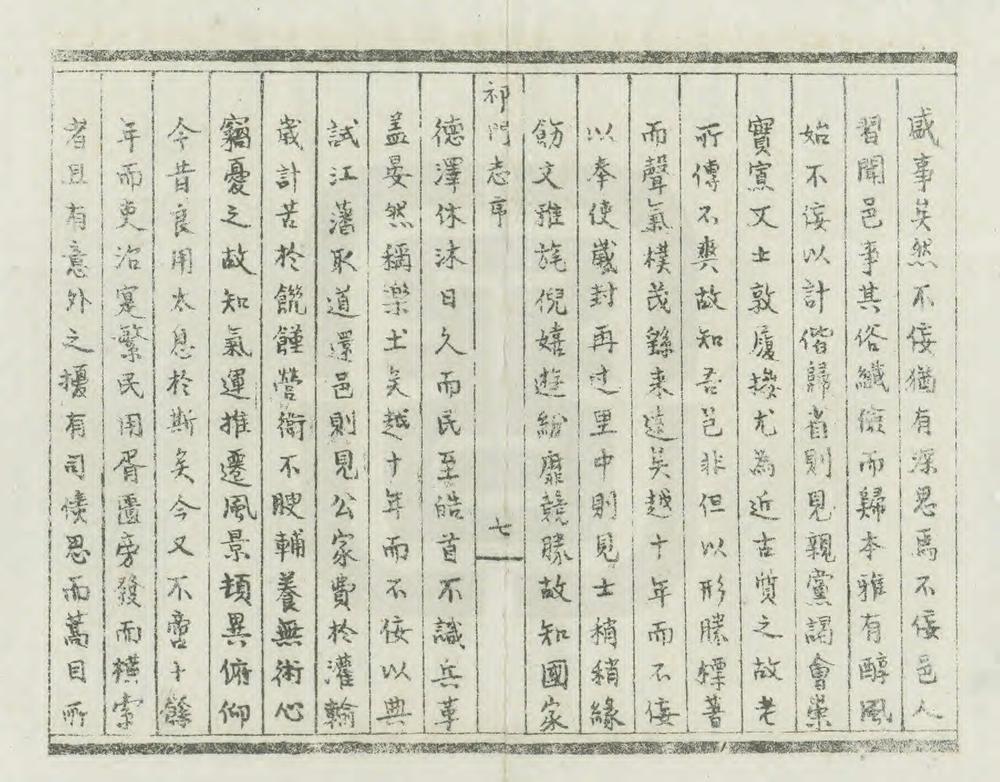 盛事矣然不佞猶有深思焉不佞邑人
習聞邑事其俗纖儉而歸本雅有醇風
始不佞以計偕歸省則見親黨謁會業
實賓文士敦履擬尤為近古質之故老
所傳不爽故知吾邑非但以形勝縹著
而聲氣樸茂繇來遠矣越十年而不佞
以奉使巀封再过里中則見士稍稍緣
飭文雅旄倪嬉遊紛靡競勝故知國家
祁門志序
七
德澤休沐日久而民至皓首不識兵革
盖晏然稱樂土矣越十年而不佞以典
試江藩取道還邑則見公家費於灌輸
歲計苦於饑饉營衛不腴輔養無術心
竊憂之故知氣運推遷風景頓異俯仰
今昔良用太息於斯矣今又不啻十餘
年而吏治寔繁民用胥匱旁發而橫索
者且有意外之擾有司倏忽而蒿目所